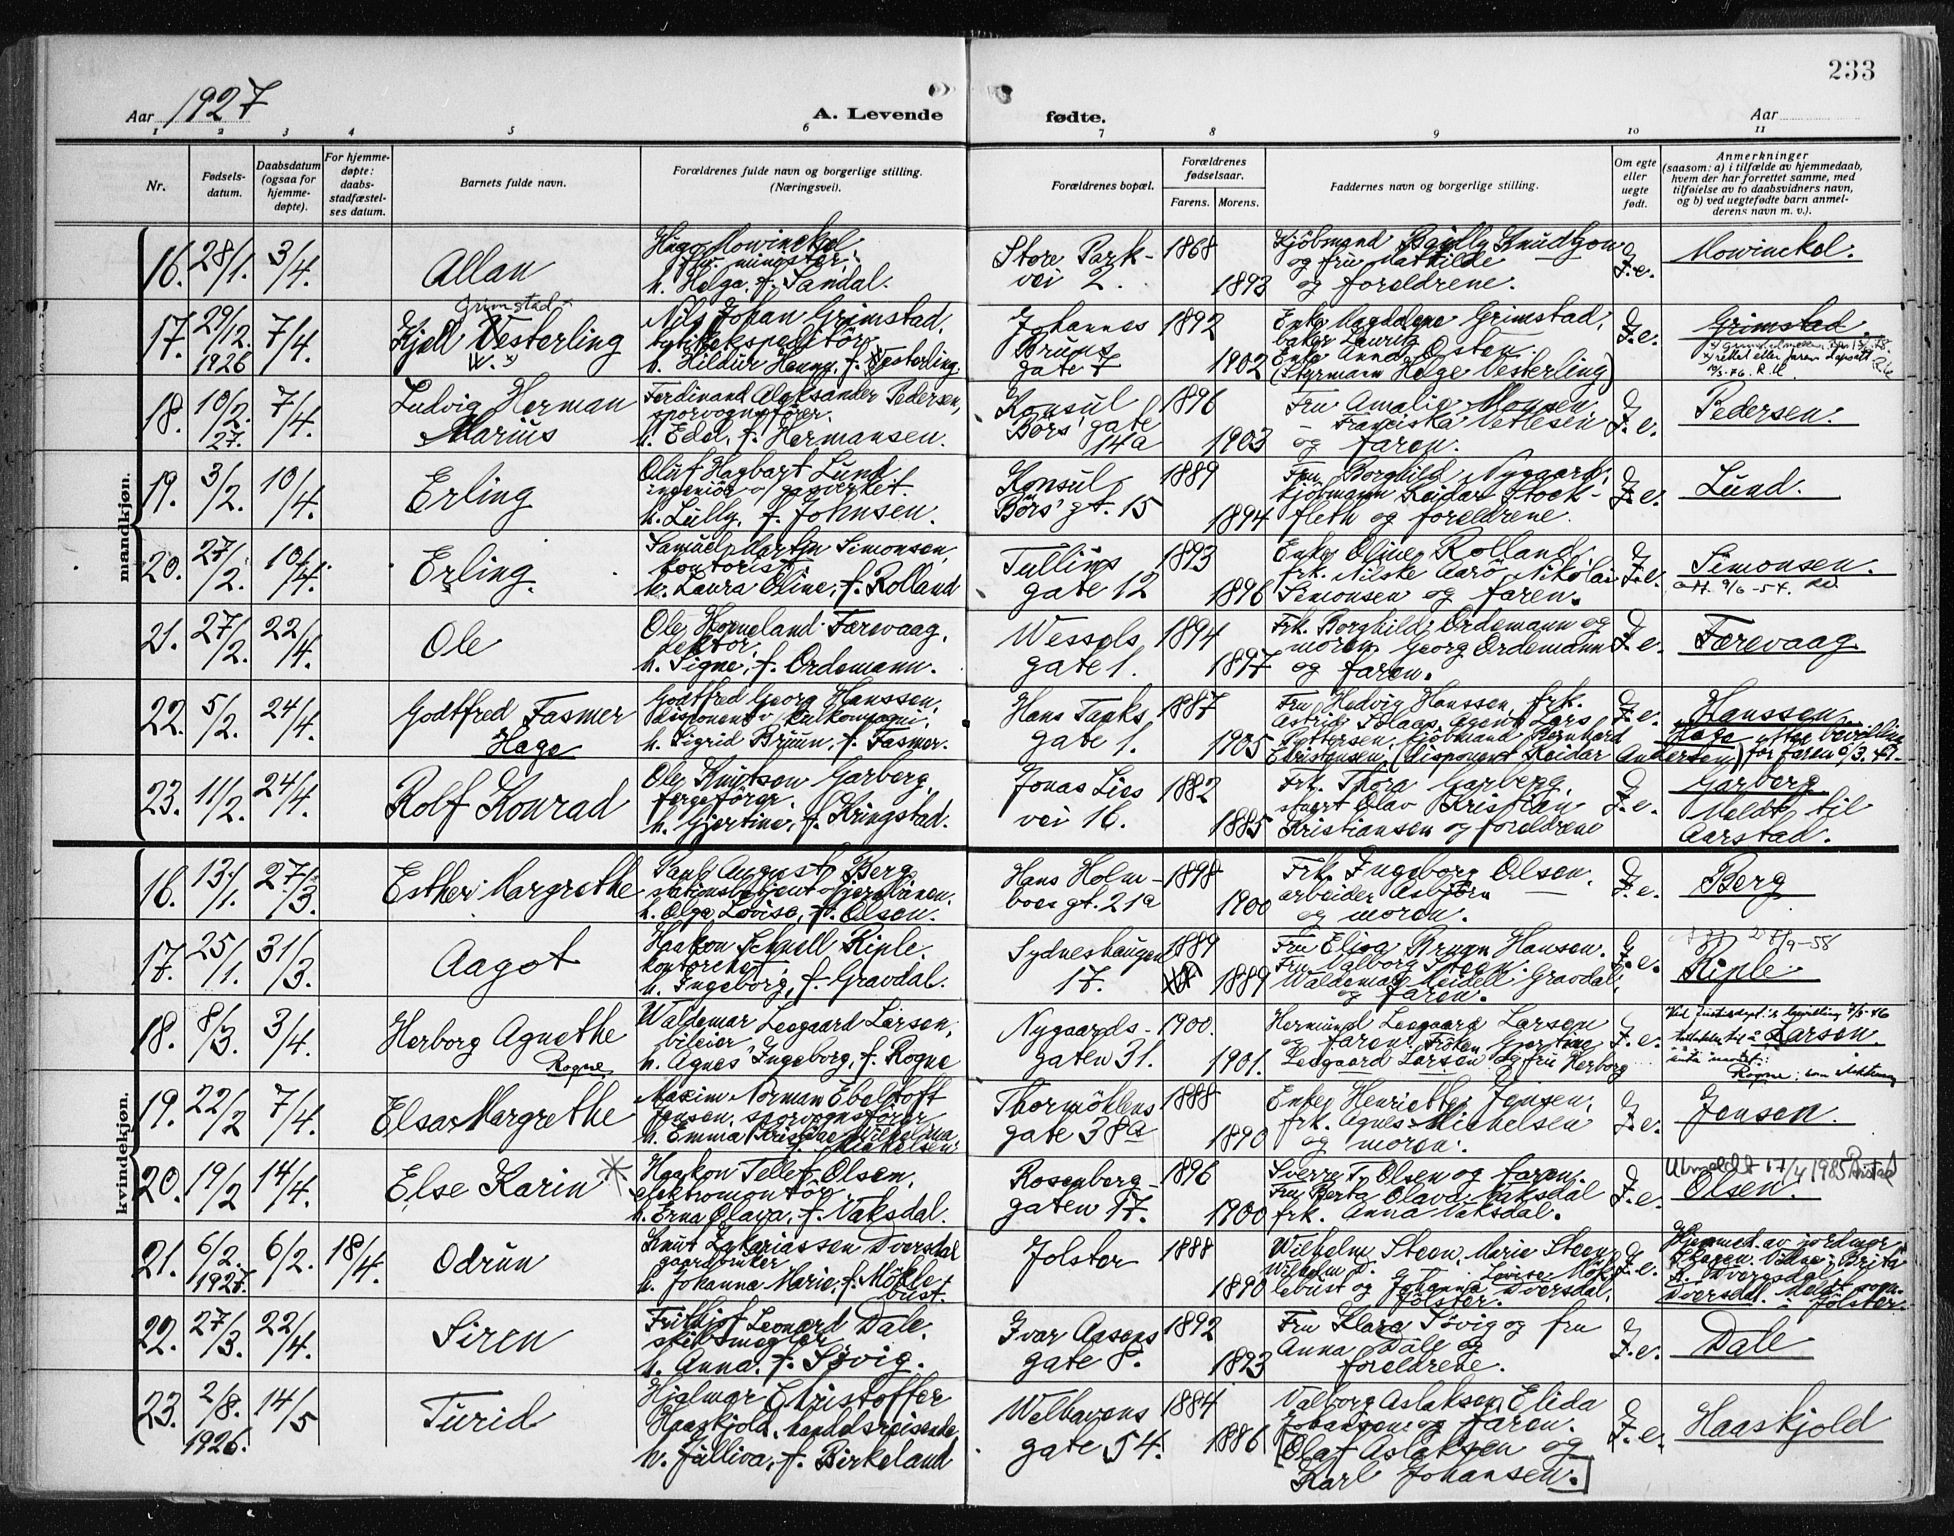 233
Aar 1927
A. Levende
fødte.
Aar
1 2 3 4 5 6 7 8 9 10 11
Nr.
Fødsels-
datum.
Daabsdatum
(ogsaa for
hjemme-
døpte).
For hjemme-
døpte:
daabs-
stadfæstel-
ses datum.
Barnets fulde navn.
Forældrenes fulde navn og borgerlige stilling.
(Næringsvei).
Forældrenes bopæl.
Forældrenes
fødselsaar.
Farens. Morens.
Faddernes navn og borgerlige stilling.
Om egte
eller
uegte
født.
Anmerkninger
(saasom: a) i tilfælde av hjemmedaab,
hvem der har forrettet samme, med
tilføielse av to daabsvidners navn,
og b) ved uegtefødte barn anmel-
derens navn m. v.).
mandkjøn.
16. 28/1. 3/4. Allan
Hugo Mowinckel
h. Helga, f. Sandal.
Store Park-
vei 2.
1868
1893
Kjöbmand
og fru Mathilde
og foreldrene.
F.e.
Mowinckel.
17. 29/12. 1926 7/4. Kjell Vesterling
Grimstad
W.
Nils Johan Grimstad,
h. Hildur Henny, f. Vesterling.
Johannes
Bruns
gate 7
1892
1902
Enke Magdalene Grimstad,
baker Lauritz
Enke Anna Osten.
(Styrmann Helge Vesterling)
F.e.
Grimstad
18. 10/2. 27. 7/4. Ludvig Herman
Marius
Ferdinand Aleksander Pedersen,
sporvognsfører.
h. Edel, f. Hermansen.
Konsul
Börs' gate
14a
1896
1903
Fru Amalie Monsen
- Franciska Vetlesen
og faren.
F.e.
Pedersen.
19. 3/2. 10/4. Erling
Oluf Hagbart Lund
ingeniör v/ gasverket.
h. Lully, f. Johnsen.
Konsul
Börs' gt. 15
1889
1894
Fru Borghild Nygaard,
kjöbmann Reidar Stock-
fleth og foreldrene.
F.e.
Lund.
20. 27/2. 10/4. Erling
Samuel Martin Simonsen,
kontorist.
h. Laura Oline, f. Rolland
Tullins
gate 12
1893
1896
Enke Oline Rolland,
frk. Nilske Aarö, Nikolai
Simonsen og faren.
F.e.
Simonsen.
att. 9/6-54.
21. 27/2. 22/4. Ole
Ole Horneland Færevaag,
lektor,
h. Signe, f. Ordemann.
Wessels
gate 1.
1894
1897
Frk. Borghild Ordemann og
moren, Georg Ordemann
og faren.
F.e.
Færevaag
22. 5/2. 24/4. Godtfred Fasmer
Hage
Godtfred Georg Hanssen,
disponent v/ kulkompagni.
h. Sigrid Bruun, f. Fasmer.
Hans Tanks
gate 1.
1887
1905
Fru Hedvig Hanssen, frk.
Astrid Blaas, agent Lars
Pettersen, kjöbmand Bernhard
Christensen, (disponent Reidar Andersen)
F.e.
Hanssen
Hage efter bevilling
for faren 6/3.41.
23. 11/2. 24/4. Rolf Konrad
Ole Knutsen Garberg,
fergefører.
h. Gjertine, f. Kringstad.
Jonas Lies
vei 16.
1882
1885
Frk. Thora Garberg,
stuert Olav Kristian
Kristiansen og foreldrene
F.e.
Garberg
Meldt til
Aarstad.
kvindekjøn.
16. 13/1. 27/3. Esther Margrethe
Paul August Berg,
stationsbetjent v/ jernbanen.
h. Olga Lovise, f. Olsen.
Hans Holm-
boes gt. 21a
1898
1900
Frk. Ingeborg Olsen,
arbeider Asbjörn —
og moren.
F.e.
Berg
17. 25/1. 31/3. Aagot
Haakon Schnell Riple.
kontorchef.
h. Ingeborg, f. Gravdal.
Sydneshaugen
17.
1889
1889
Fru Elisa Bruun Hansen.
Fru Valborg Steen.
Waldemar Meidell Gravdal,
og faren.
F.e.
27/9-58
Riple
18. 8/3. 3/4. Herborg Agnethe
Rogne
Waldemar Lesgaard Larsen,
bileier
h. Agnes Ingeborg, f. Rogne
Nygaards-
gaten 31.
1900.
1901.
Hermund Lesgaard Larsen
og faren, Fröken Gjertine
Lesgaard Larsen og fru Herborg
F.e.
Larsen.
Rogne: som slektsnavn
19. 22/2 7/4. Elsa Margrethe
Maxim Norman Ebeltoft
Jensen, sporvognsfører
h. Emma Kristine Wilhelmina,
f. Mickelsen.
Thormöhlens
gate 38a
1888
1890
Enke Henriette Jensen,
frk. Agnes Michelsen
og moren.
F.e.
Jensen.
20. 19/2 14/4. Else Karin *
Haakon Tellef Olsen,
elektromontör.
h. Erna Olava, f. Vaksdal.
Rosenberg-
gaten 17.
1896
1900
Sverre T. Olsen og faren.
Fru Berta Olava Vaksdal
frk. Anna Vaksdal.
F.e.
Utmeldt 17/4 1985
Olsen.
21. 6/2. 1927. 6/2. 18/4. Odrun
Knut Zakariassen Dversdal
gaardbruker
h. Johanna Marie, f. Mökle-
bust.
Jolster
1888
1890
Wilhelm Steen, Marie Steen,
Wilhelm D. Lovise Mök-
lebust og Johanna Dversdal,
Jölster.
F.e.
Hjemmed. av jordmor
Dversdal. Meldt sogn.
i Jölster.
22. 27/3. 22/4. Siren
Frithjof Leonard Dale.
skibsmegler
h. Anna, f. Søvig.
Ivar Aasens
gate 8.
1892
1893
Fru Klara Søvig og fru
Anna Dale og
foreldrene.
F.e.
Dale
23. 2/8. 1926. 14/5 Turid
Hjalmar Christoffer
Haaskjold, handelsreisende,
h. Jülliva, f. Birkeland
Welhavens
gate 54.
1884
1886
Valborg Aslaksen, Elida
Johansen og faren.
[Olaf Aslaksen og
Karl Johansen.]
F.e.
Haaskjold